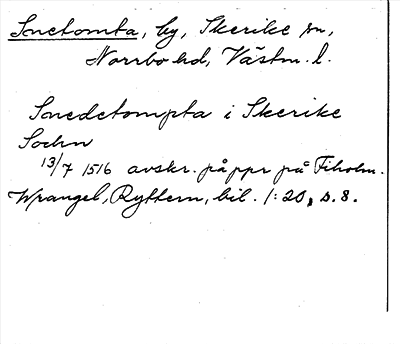 Snetomta, by, Skerike sn,
Norrbo hd, Västm. l.
Snedetompta i Skerike
Sochn
13/7 1516 avskr. på ppr på Fiholm.
Wrangel, Ryttern, bil. 1:20, s. 8.